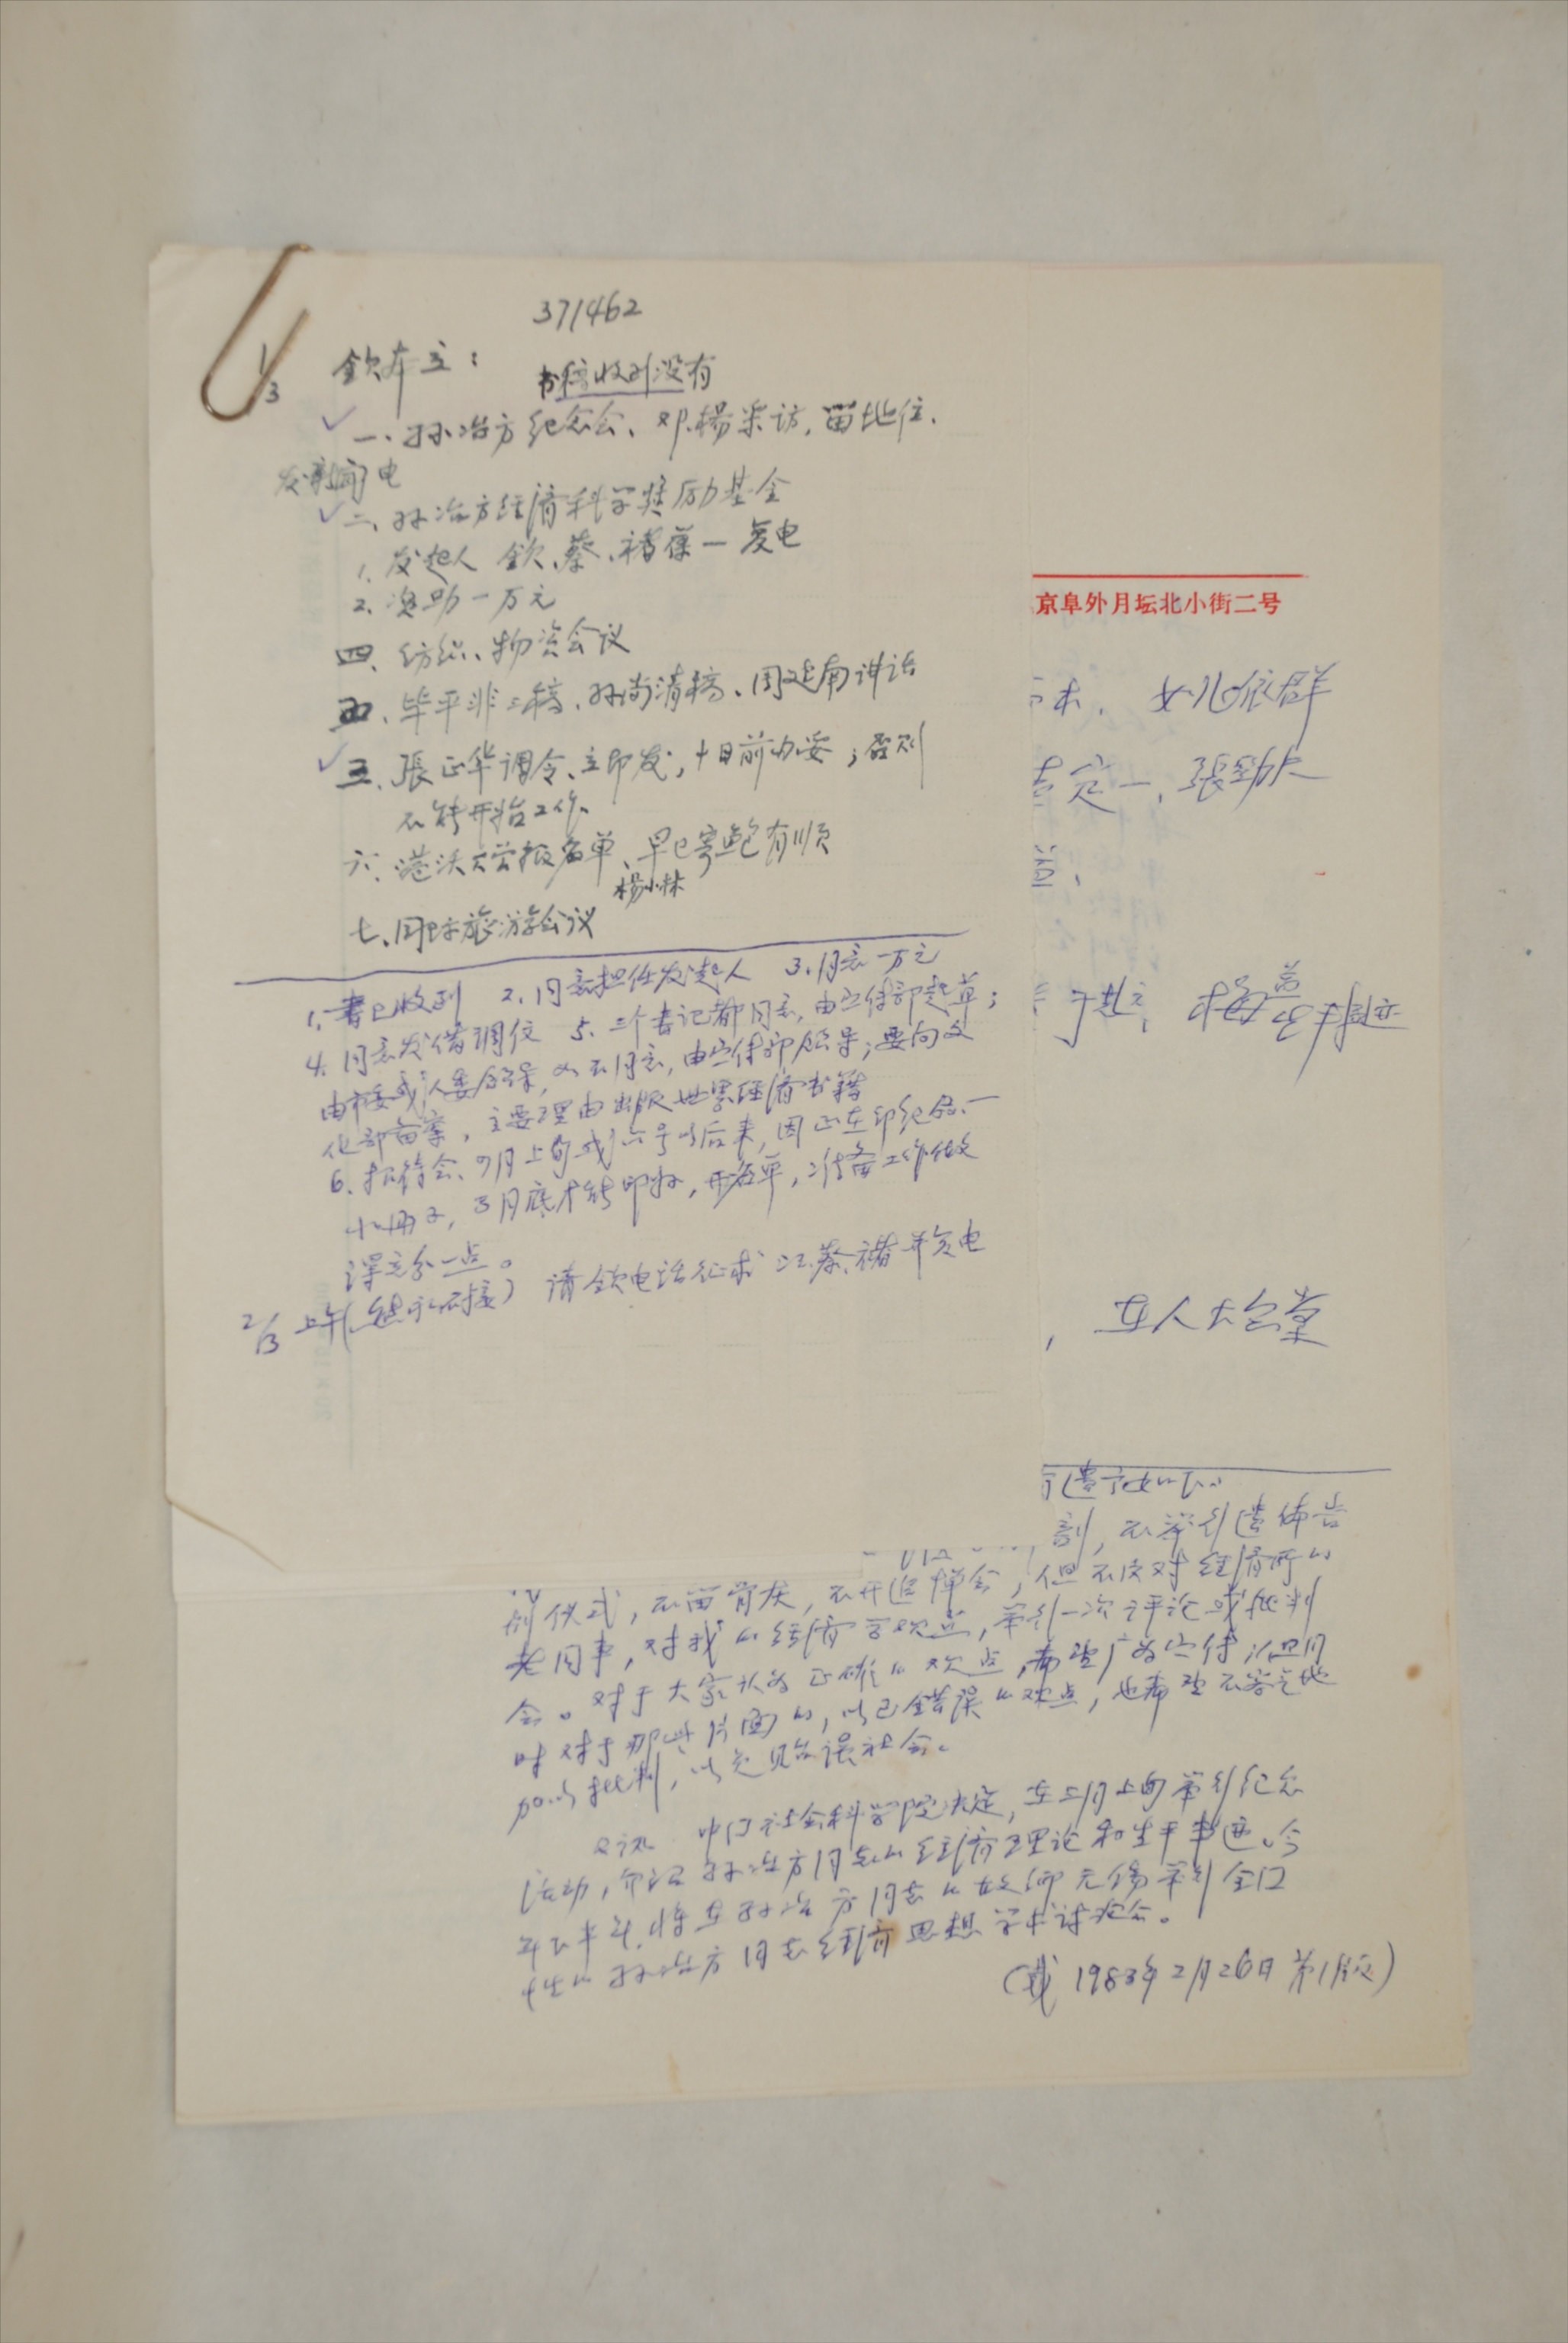 371462
1/3 钦本立：
书稿收到没有
一、孙冶方纪念会、邓、杨采访，留地位、
发新闻电
二、孙冶方经济科学奖励基金
1. 发起人 钦、蔡、褚葆一复电
2. 资助一万元
四、纺织、物资会议
五、毕平非二稿、孙尚清稿、周建南讲话
三、張正华调令、立即发，十日前办妥；否则
不能开始工作。
六、港沃大学报名单、早已寄鲍有顺
杨小林
七、国际旅游会议
1. 書已收到 2. 同意担任发起人 3. 同意一万元
4. 同意发借调信 5. 三个书记都同意，由宣传部起草；
由市委或人委领导，不同意，由宣传部领导；要向文
化部备案，主要理由出版世界经济书籍
6. 招待会、月上旬或六号以后来，因正在印纪念、一
小册子，3月底才能印好，开名单，准备工作做
得充分一点。
2/3 上午 请钦电话征求江、蔡、褚并复电
京阜外月坛北小街二号
女儿依群
定一、張勁夫
于光远，梅益
，在人大会堂
遗言如下：
剖，不举行遗体告
别仪式，不留骨灰，不开追悼会，但不反对经济所的
老同事，对我的经济学观点，举行一次评论或批判
会。对于大家认为正确的观点，希望广为宣传；但同
时对于那些片面的，以至错误的观点，也希望不客气地
加以批判，以免贻误社会。
又讯 中国社会科学院决定，在三月上旬举行纪念
活动，介绍孙冶方同志的经济理论和生平事迹。今
年下半年，将在孙冶方同志的故乡无锡举行全国
性的孙冶方同志经济思想学术讨论会。
(载 1983年2月26日 第1版)